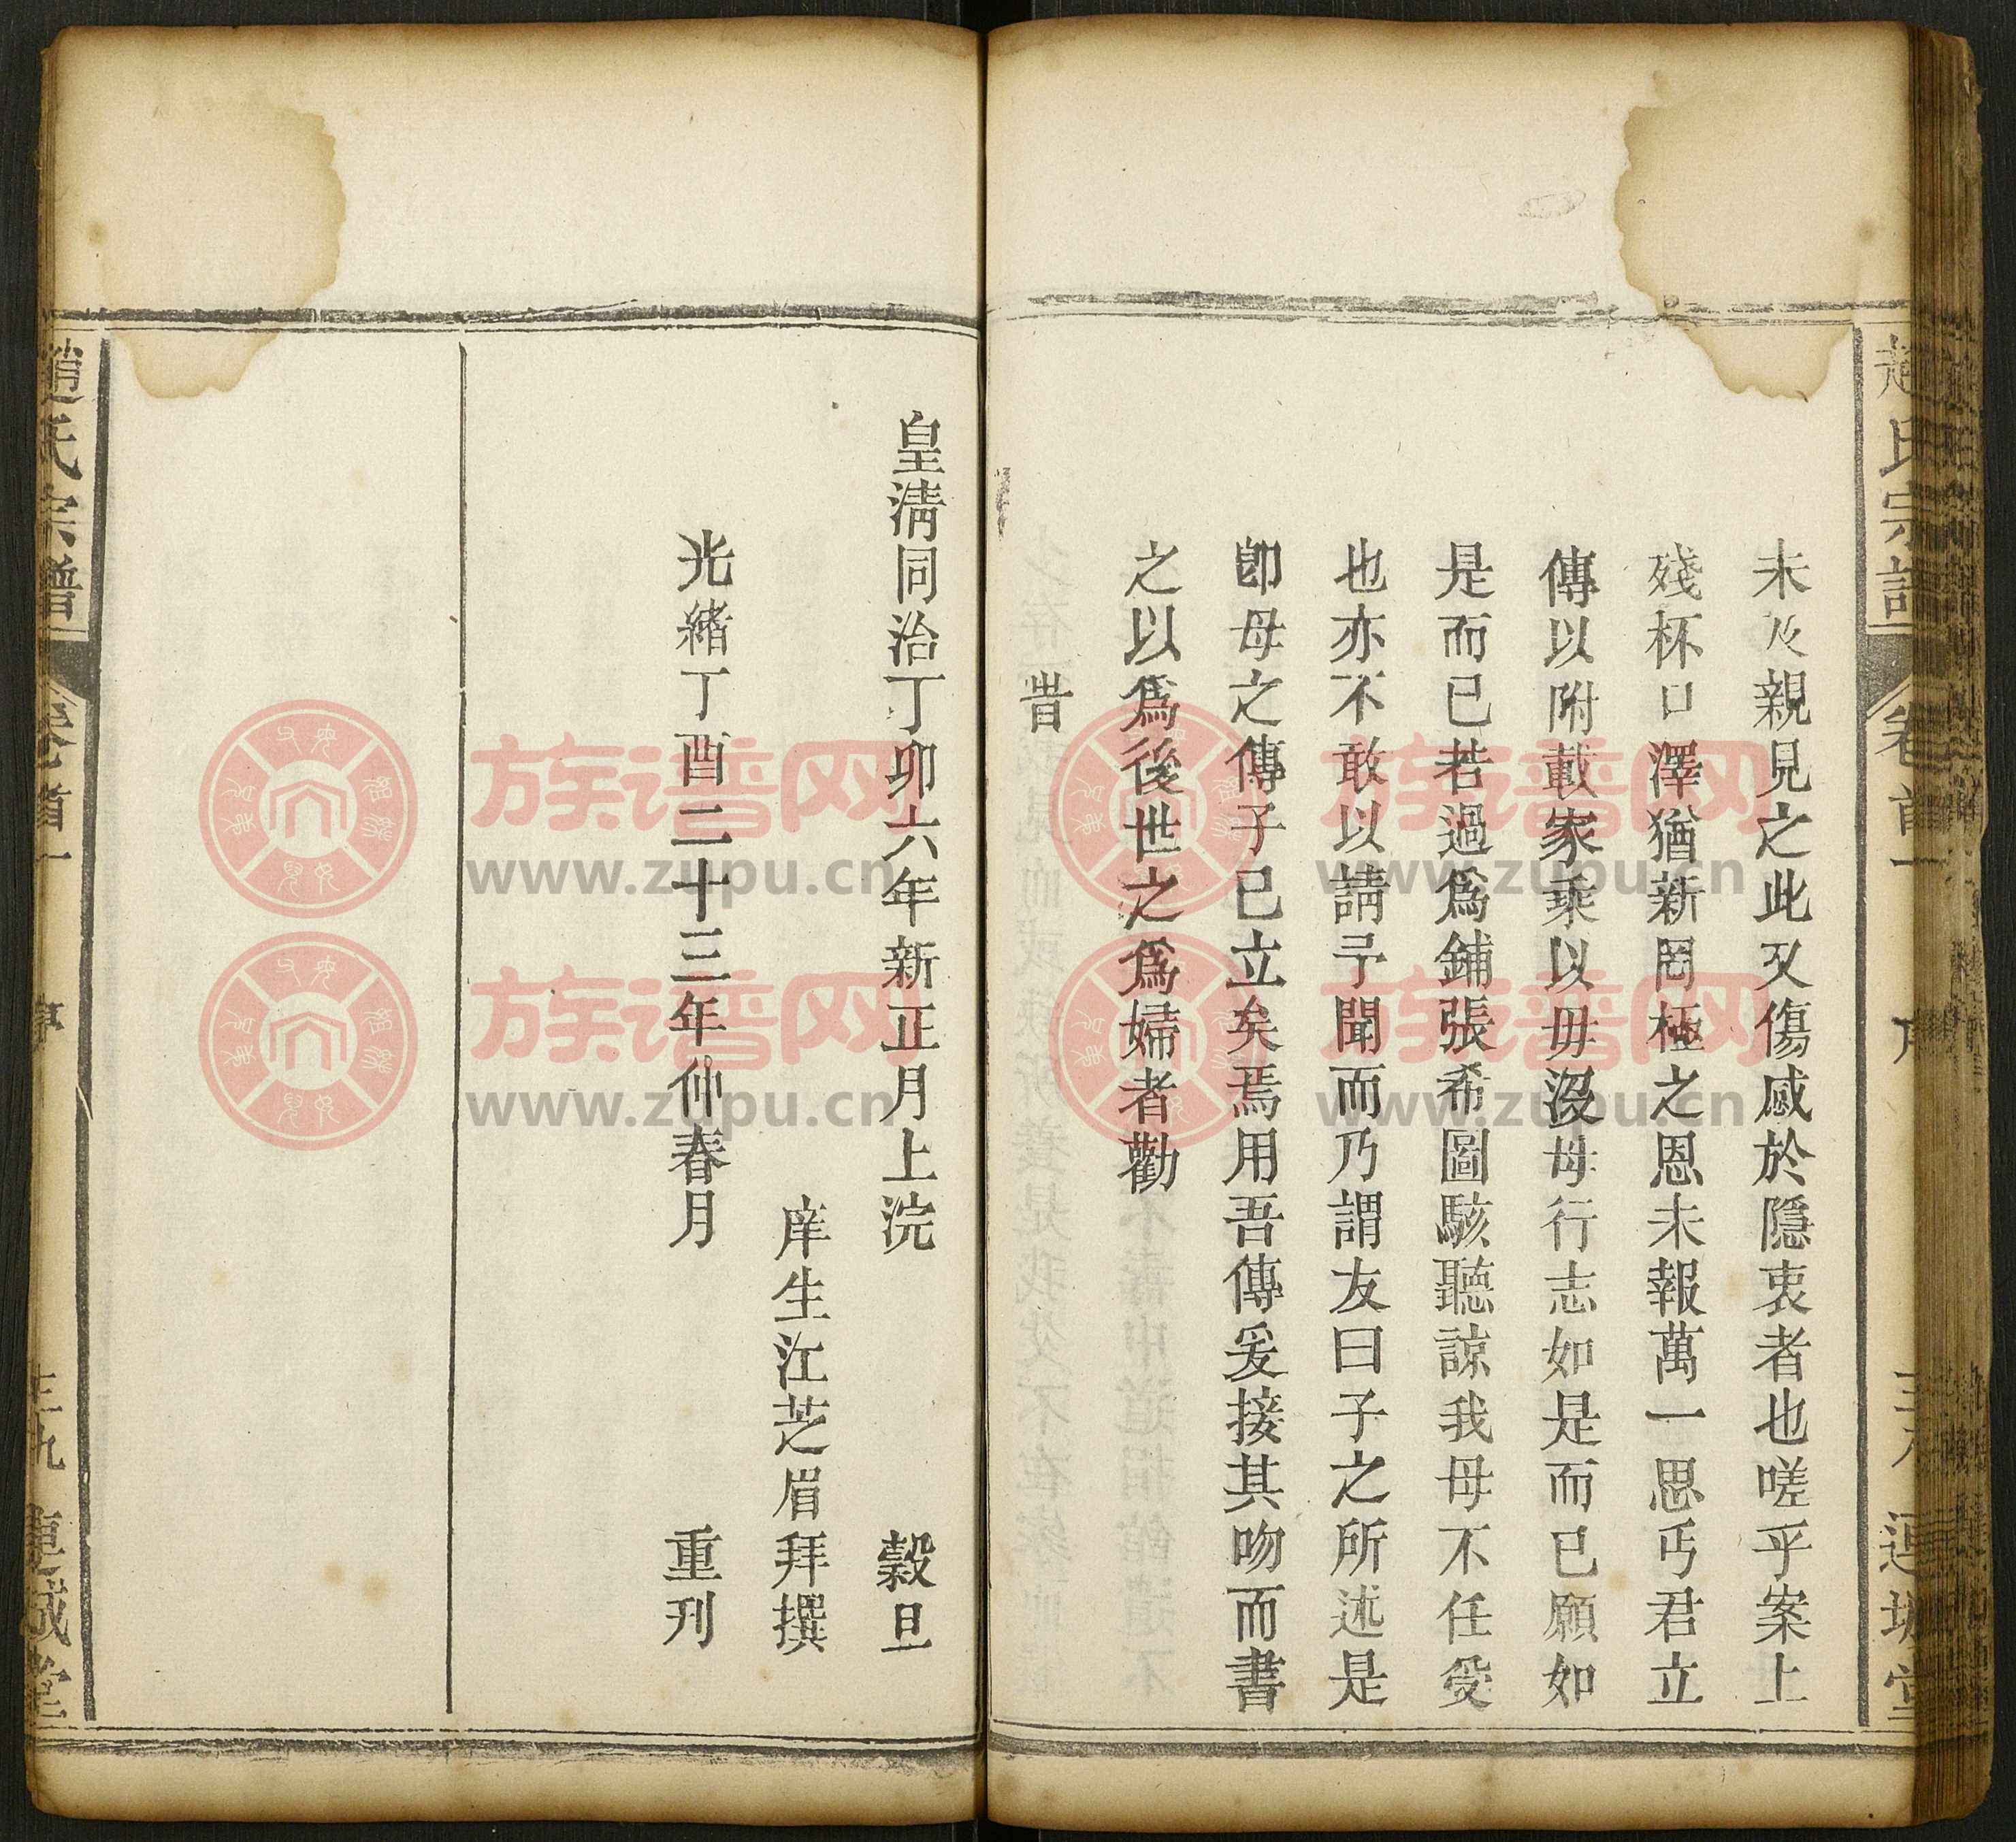 趙氏宗譜 卷首一 序 連城堂
未及親見之此又傷感於隱衷者也嗟乎案上
殘杯口澤猶新罔極之恩未報萬一思丐君立
傳以附載家乘以毋没母行志如是而已願如
是而已若過爲鋪張希圖駭聽諒我母不任受
也亦不敢以請予聞而乃謂友曰子之所述是
卽母之傳子已立矣焉用吾傳爰接其吻而書
之以爲後世之爲婦者勸
旹
皇淸同治丁卯六年新正月上浣 穀旦
庠生江芝眉拜撰
光緒丁酉二十三年仲春月 重刊
趙氏宗譜 卷首一 序 三九 連城堂
族谱网
www.zupu.cn
族谱网
www.zupu.cn
族谱网
www.zupu.cn
族谱网
www.zupu.cn